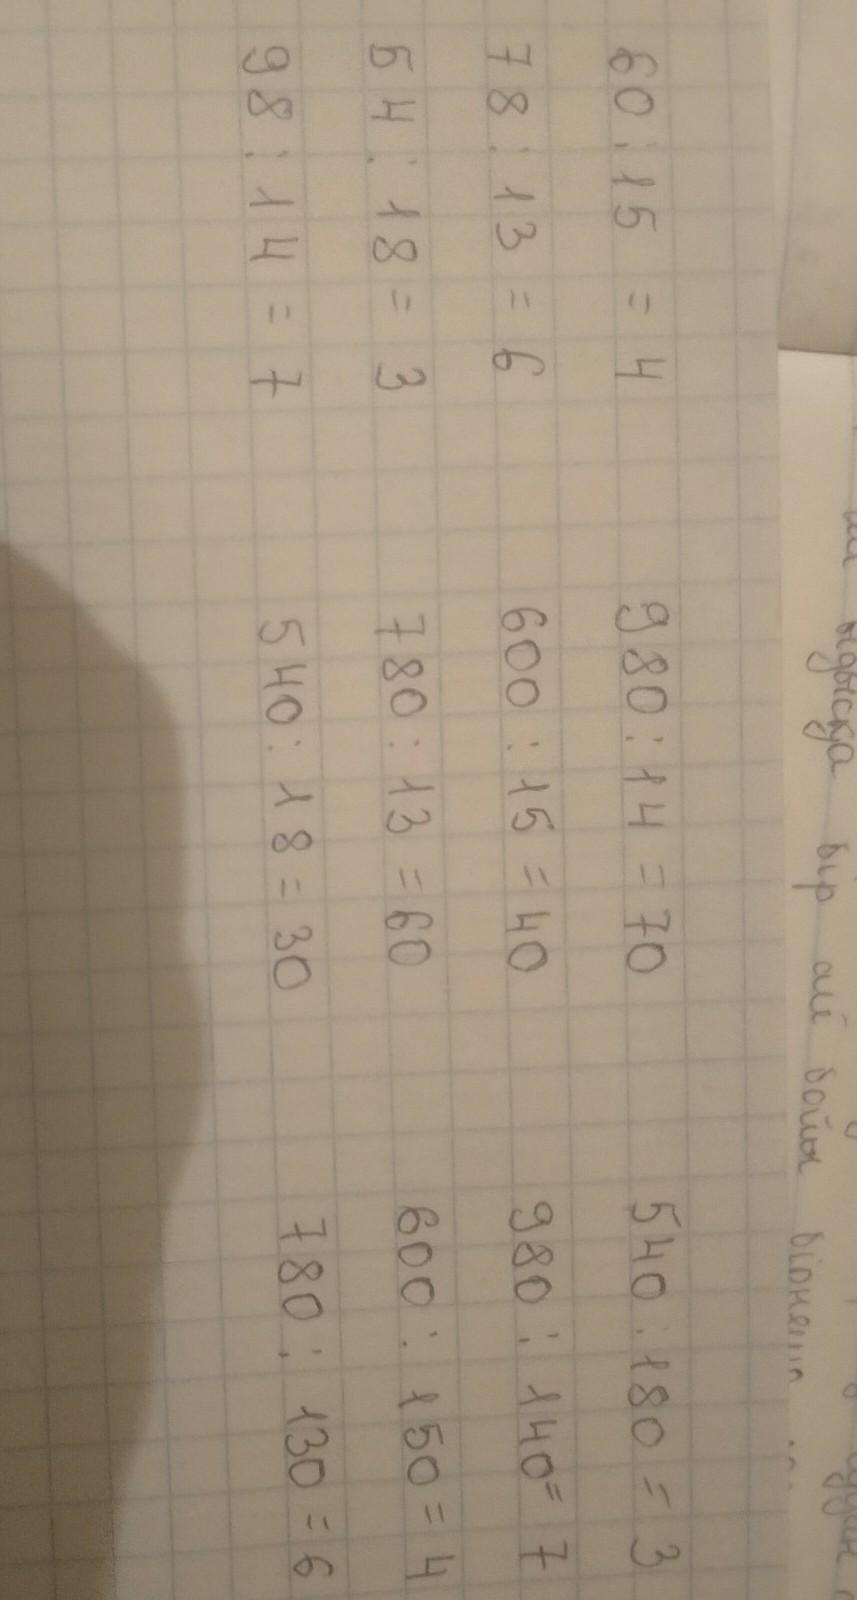 60 : 15 = 4
78 : 13 = 6
54 : 18 = 3
98 : 14 = 7
980 : 14 = 70
600 : 15 = 40
780 : 13 = 60
540 : 18 = 30
540 : 180 = 3
980 : 140 = 7
600 : 150 = 4
780 : 130 = 6
ыдысқа бір